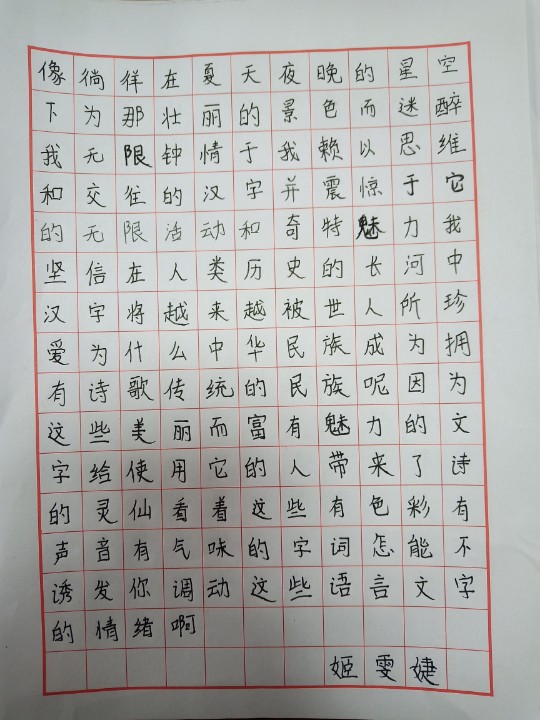 像徜徉在夏天夜晚的星空
下为那壮丽的景色而迷醉
我无限钟情于我赖以思维
和交往的汉字并震惊于它
的无限活动和奇特魅力我
坚信在人类历史的长河中
汉字将越来越被世人所珍
爱为什么中华民族成为拥
有诗歌传统的民族呢因为
这些美丽而富有魅力的文
字给使用它的人带来了诗
的灵仙看着这些有色彩有
声音有气味的字词怎能不
诱发你调动这些语言文字
的情绪啊
姬雯婕